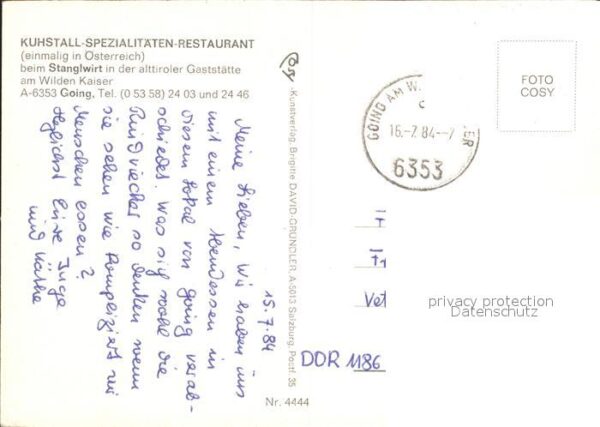 KUHSTALL-SPEZIALITÄTEN-RESTAURANT
(einmalig in Österreich)
beim Stanglwirt in der alttiroler Gaststätte
am Wilden Kaiser
A-6353 Going, Tel. (0 53 58) 24 03 und 24 46
15.7.84
Meine Lieben, wir haben uns
mit einem Abendessen in
diesem Lokal von Going verab-
schiedet. Was sich wohl die
Rindviecher so denken wenn
sie sehen wie kompliziert wir
Menschen essen?
Herzlichst Eure Inge
und Käthe
Cosy -Kunstverlag, Brigitte DAVID-GRÜNDLER, A-5013 Salzburg, Postf. 35
Nr. 4444
GOING AM W. ER
16.-7.84--7
6353
FOTO
COSY
DDR 1186
privacy protection
Datenschutz